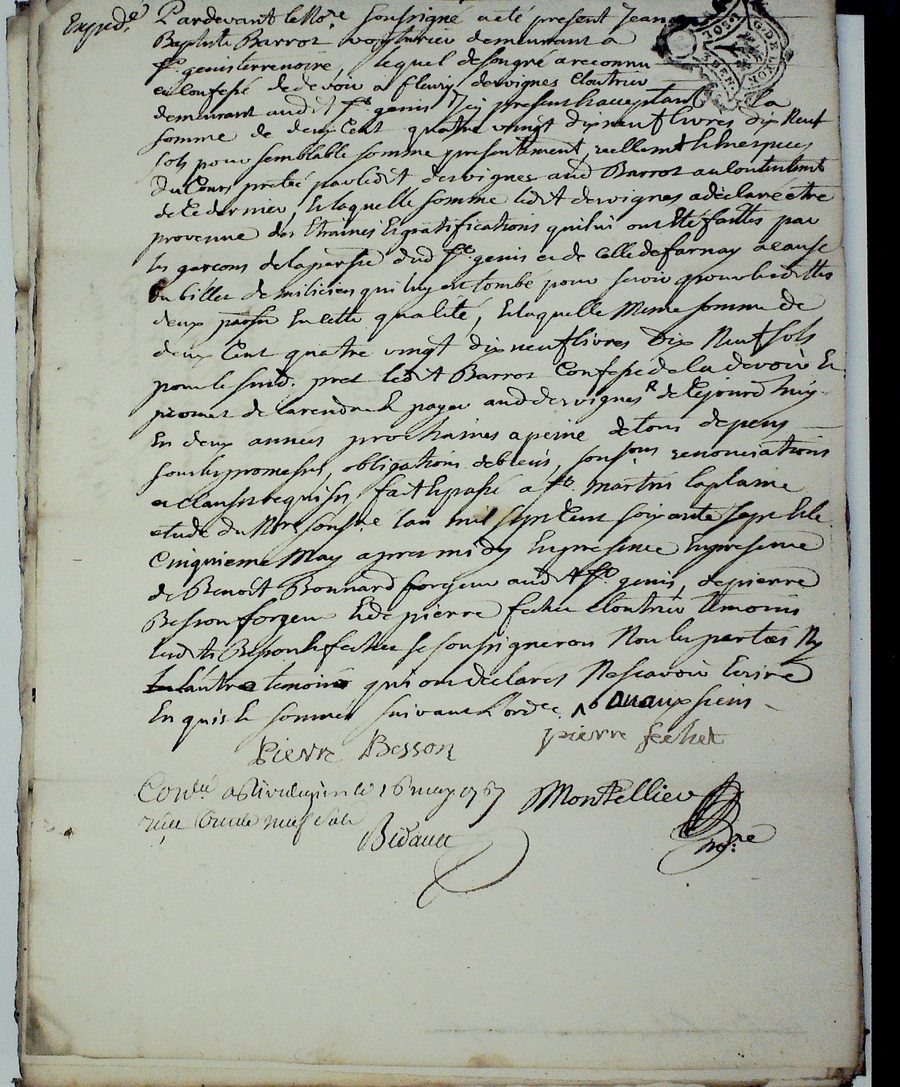 Expéd.e Pardevant le No.re soussigné a eté présent Jean
Baptiste Barrot voiturier demeurant a
st. genis terrenoire, lequel de son gré a reconnu
et Confessé de devoir a fleury desvignes cloutrier
demeurant audit st. genis Icy present & acceptant la
somme de deux Cent quatre vingt dix neuf livres dix neuf
sols pour semblable somme presentement réellement en especes
du Cours preté par ledit desvignes aud Barrot au Contentement
de Ce dernier, laquelle somme ledit desvignes a declaré etre
provenue des Etraines & gratifications qui lui ont été faittes par
les garçons de la parsse dud st. genis et de Celle de farnay a Cause
du billet de milicien qui luy est tombé pour servir pour lesdittes
deux parsses En cette qualité, & laquelle Meme somme de
deux Cent quatre vingt dix neuf livres dix Neuf sols
pour le susd. pret ledit Barrot Confesse de la devoir Et
promet de la rendre & payer aud desvignes de Ce jourd'huy
En deux années prochaines a peine de tous depens
sous les promesses, obligations de biens, soumissions renonciations
et clauses requises, fait & passé a st. martin la plaine
etude du No.re souss.é l'an mil sept Cent soixante sept & le
Cinquieme May apres midy En presence En presence
de Benoit Bonnard forgeur audit st. genis, de pierre
Besson forgeur & de pierre fechet cloutrier temoins
lesdits Besson & fechet se soussigneront Non les parties Ny
l'autre temoin qui ont declarés Ne scavoir Ecrire
En quis & sommés suivant l'ordce.
Pierre Besson pierre fechet
Con.lé a St. le 16 may 1767 Montellier
reçu no.re
Bidault